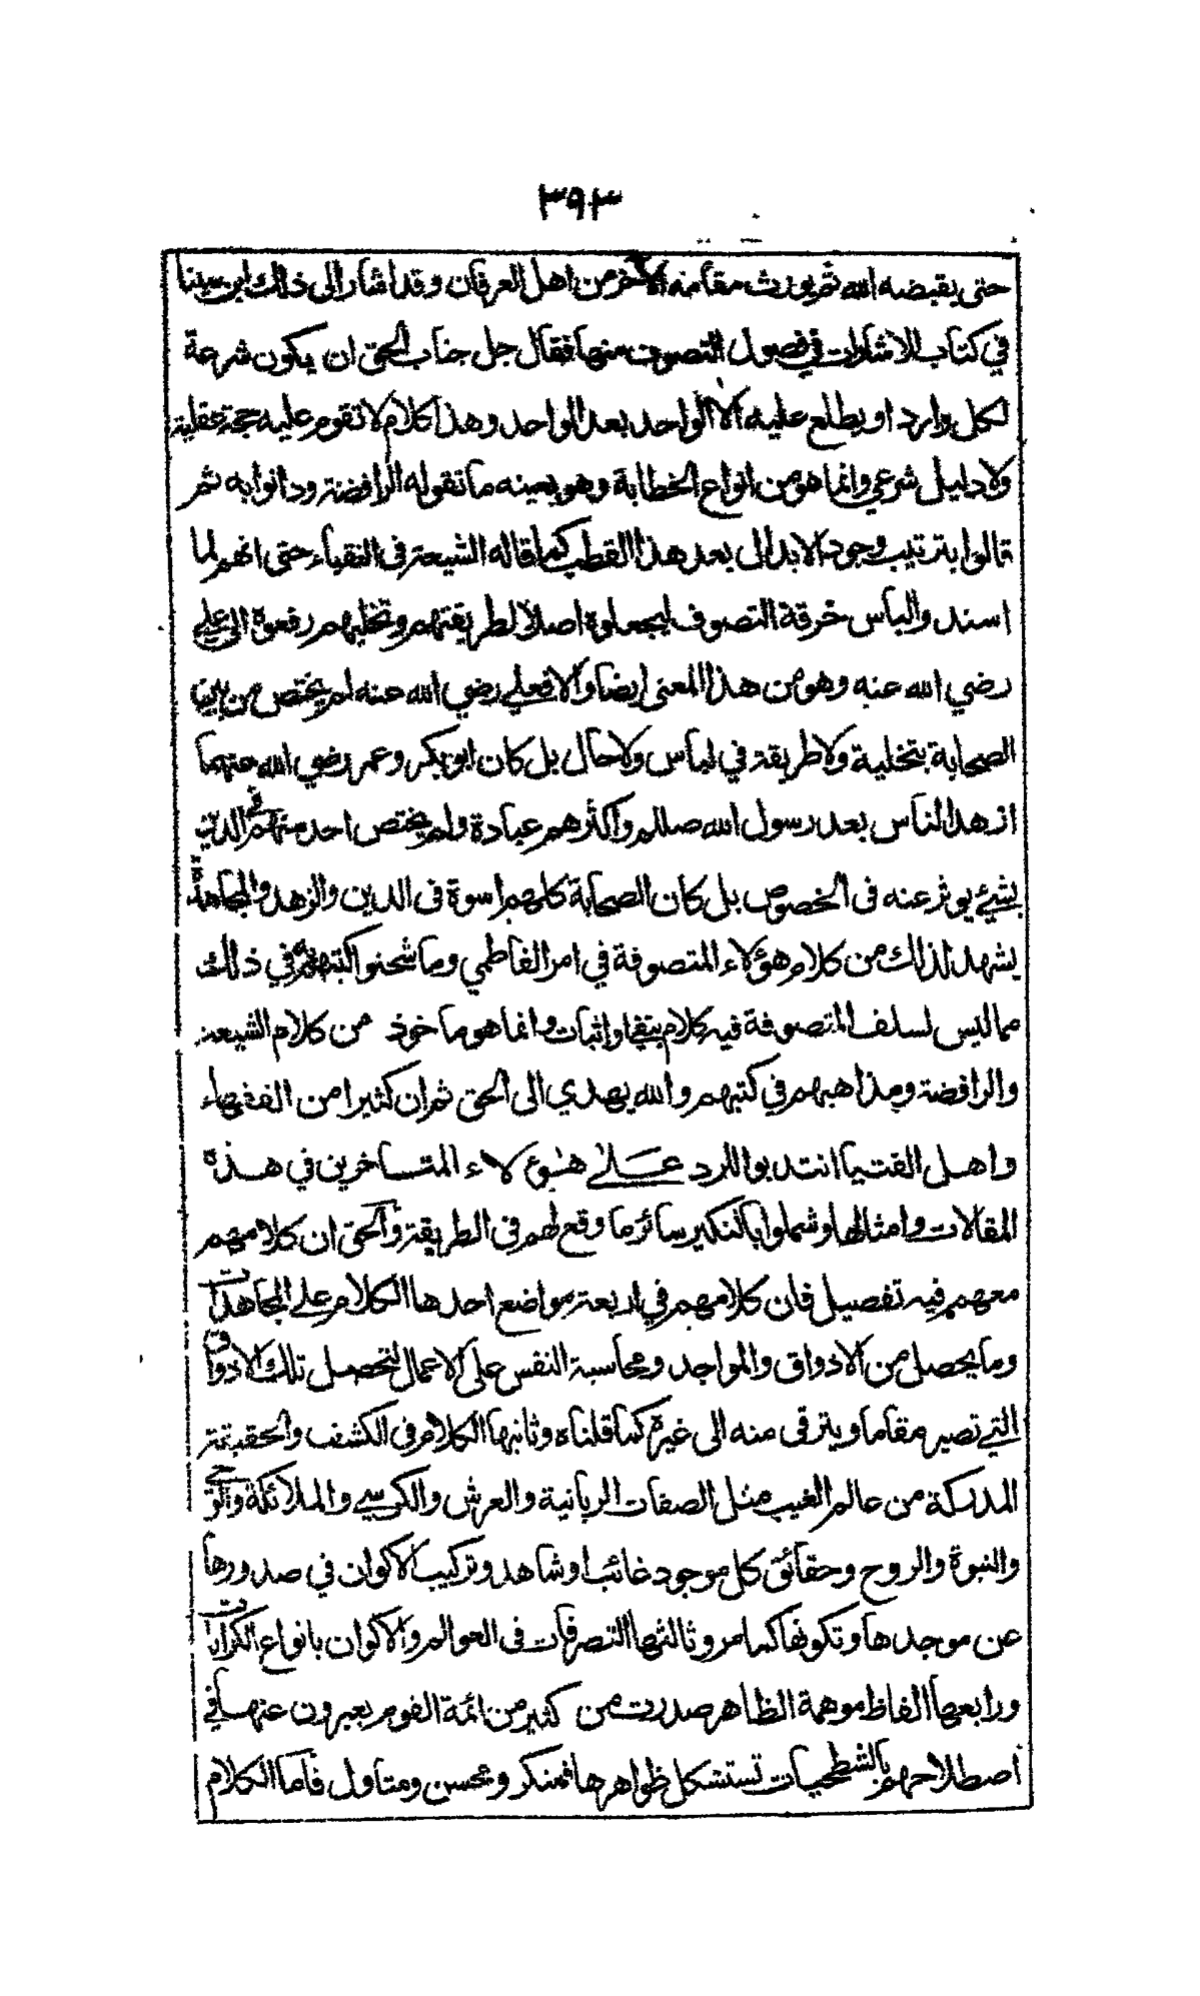 ٣٩٣
حتى يقبضه الله ثم يورث مقامه الآخر من اهل العرفان وقد اشار الى ذلك ابن سينا
في كتاب الاشارات في فصول التصوف منها فقال جل جناب الحق ان يكون شرعة
لكل وارد او يطلع عليه الا الواحد بعد الواحد وهذا كلام لا تقوم عليه حجة عقلية
ولا دليل شرعي وانما هو من انواع الخطابة وهو بعينه ما تقوله الرافضة ودانوا به ثم
قالوا بترتيب وجود الابدال بعد هذا القطب كما قاله الشيعة في النقباء حتى انهم لما
اسندوا لباس خرقة التصوف ليجعلوه اصلا لطريقتهم وتخليهم رفعوه الى علي
رضي الله عنه وهو من هذا المعنى ايضا والا فعلي رضي الله عنه لم يختص من بين
الصحابة بتخلية ولا طريقة في لباس ولا حال بل كان ابو بكر وعمر رضي الله عنهما
ازهد الناس بعد رسول الله صللم واكثرهم عبادة ولم يختص احد منهم في الدين
بشيء يوثر عنه في الخصوص بل كان الصحابة كلهم اسوة في الدين والزهد والمجاهدة
يشهد لذلك من كلام هؤلاء المتصوفة في امر الفاطمي وما شحنوا كتبهم في ذلك
مما ليس لسلف المتصوفة فيه كلام بنفي او اثبات وانما هو ماخوذ من كلام الشيعة
والرافضة ومذاهبهم في كتبهم والله يهدي الى الحق ثم ان كثيرا من الفقهاء
واهل الفتيا انتدبوا للرد على هؤلاء المتاخرين في هذه
المقالات وامثالها وشملوا بالنكير سائر ما وقع لهم في الطريقة والحق ان كلامهم
معهم فيه تفصيل فان كلامهم في اربعة مواضع احدها الكلام على المجاهدات
وما يحصل من الاذواق والمواجد ومحاسبة النفس على الاعمال لتحصل تلك الاذواق
التي تصير مقاما ويترقى منه الى غيره كما قلناه وثانيها الكلام في الكشف والحقيقة
المدركة من عالم الغيب مثل الصفات الربانية والعرش والكرسي والملائكة والوحي
والنبوة والروح وحقائق كل موجود غائب او شاهد وتركيب الاكوان في صدورها
عن موجدها وتكونها كما مر وثالثها التصرفات في العوالم والاكوان بانواع الكرامات
ورابعها الفاظ موهمة الظاهر صدرت من كثير من ائمة القوم يعبرون عنها في
اصطلاحهم بالشطحيات تستشكل ظواهرها فمنكر ومحسن ومتاول فاما الكلام